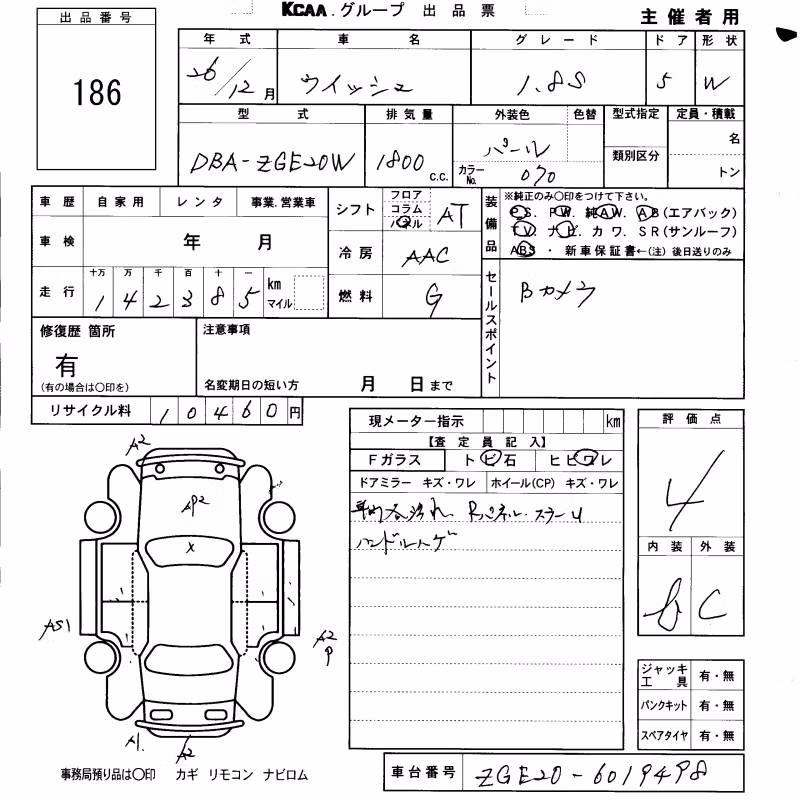 KCAA.グループ 出品票
主催者用
出品番号
186
年式 車名 グレード ドア 形状
26/12月 ウイッシュ 1.8S 5 W
型式 排気量 外装色 色替 型式指定 定員・積載
DBA-ZGE20W 1800 C.C. パール 名
カラーNo. 070 類別区分 トン
車歴 自家用 レンタ 事業.営業車
シフト フロア コラム パネル AT
装備品 ※純正のみ○印をつけて下さい。
PS. PW. 純AW. AB(エアバック)
TV. ナビ. カワ. SR(サンルーフ)
ABS ・ 新車保証書←(注) 後日送りのみ
車検 年 月
冷房 AAC
走行 十万 万 千 百 十 一
142385 km マイル
燃料 G
セールスポイント
Bカメラ
修復歴 箇所
有
(有の場合は○印を)
注意事項
名変期日の短い方 月 日まで
リサイクル料 10460円
現メーター指示 km
【査定員記入】
Fガラス トビ石 ヒビワレ
ドアミラー キズ・ワレ ホイール(CP) キズ・ワレ
Rパネル.
ハンドルハゲ
評価点
4
内装 外装
C
A2
AP2
X
AS1
A2
P
A1.
A2
ジャッキ工具 有・無
パンクキット 有・無
スペアタイヤ 有・無
事務局預り品は○印 カギ リモコン ナビロム
車台番号 ZGE20-6019498